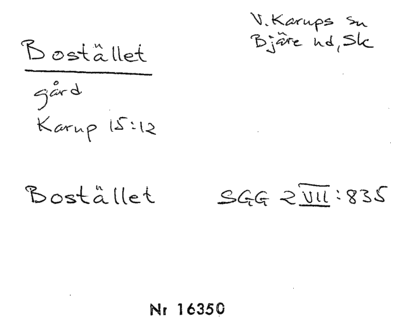 V. Karups sn
Bjäre hd, Sk
Bostället
gård
Karup 15:12
Bostället SGG 2 VII : 835
Nr 16350